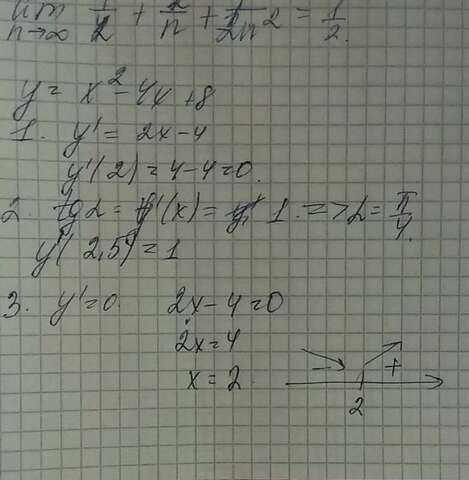 lim 1/2 + 2/n + 1/2n² = 1/2.
n→∞
y = x² - 4x + 8
1. y' = 2x - 4
y'(2) = 4 - 4 = 0.
2. tg α = y'(x) = 1. => α = π/4.
y'(2,5) = 1
3. y' = 0. 2x - 4 = 0
2x = 4
x = 2
- +
2